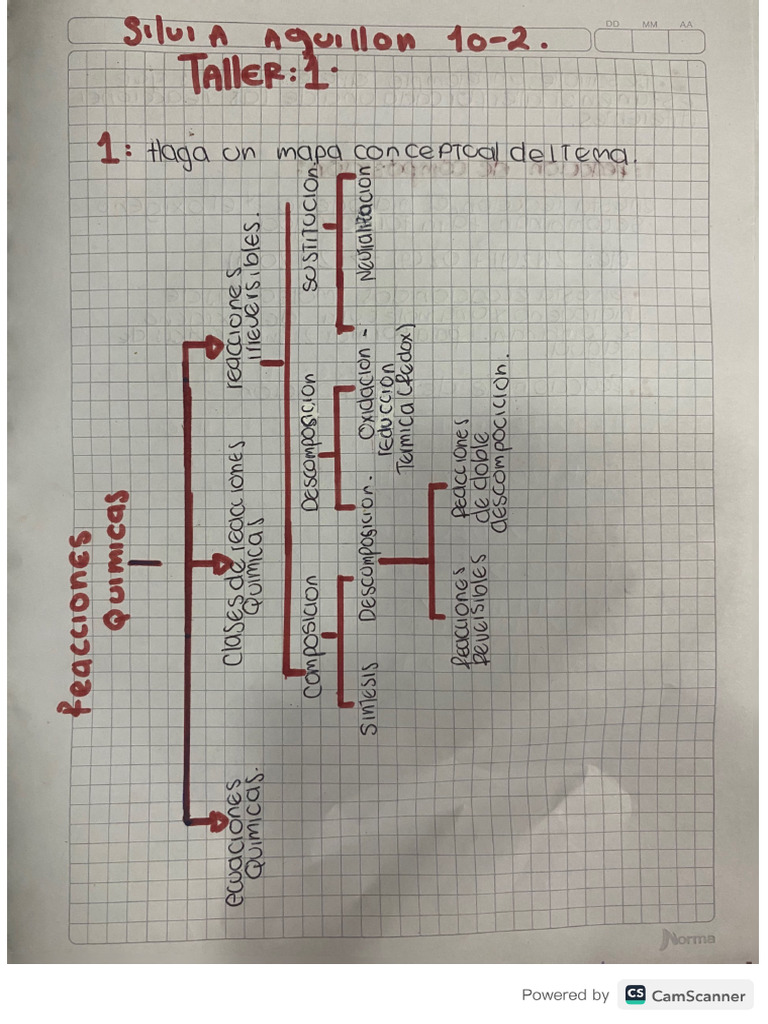 DD MM AA
Silvia Aguillon 10-2.
TALLER: 1.
1: Haga un mapa conceptual del Tema.
Reacciones
Quimicas
ecuaciones
Quimicas.
Clases de reacciones
Quimicas
reacciones
irreversibles.
Composicion
Descomposicion
Sustitucion
Sintesis
Descomposicion.
Oxidacion -
reduccion
Termica (Redox)
Neutralizacion
Reacciones
Reversibles
Reacciones
de doble
descompocicion.
Norma
Powered by CS CamScanner